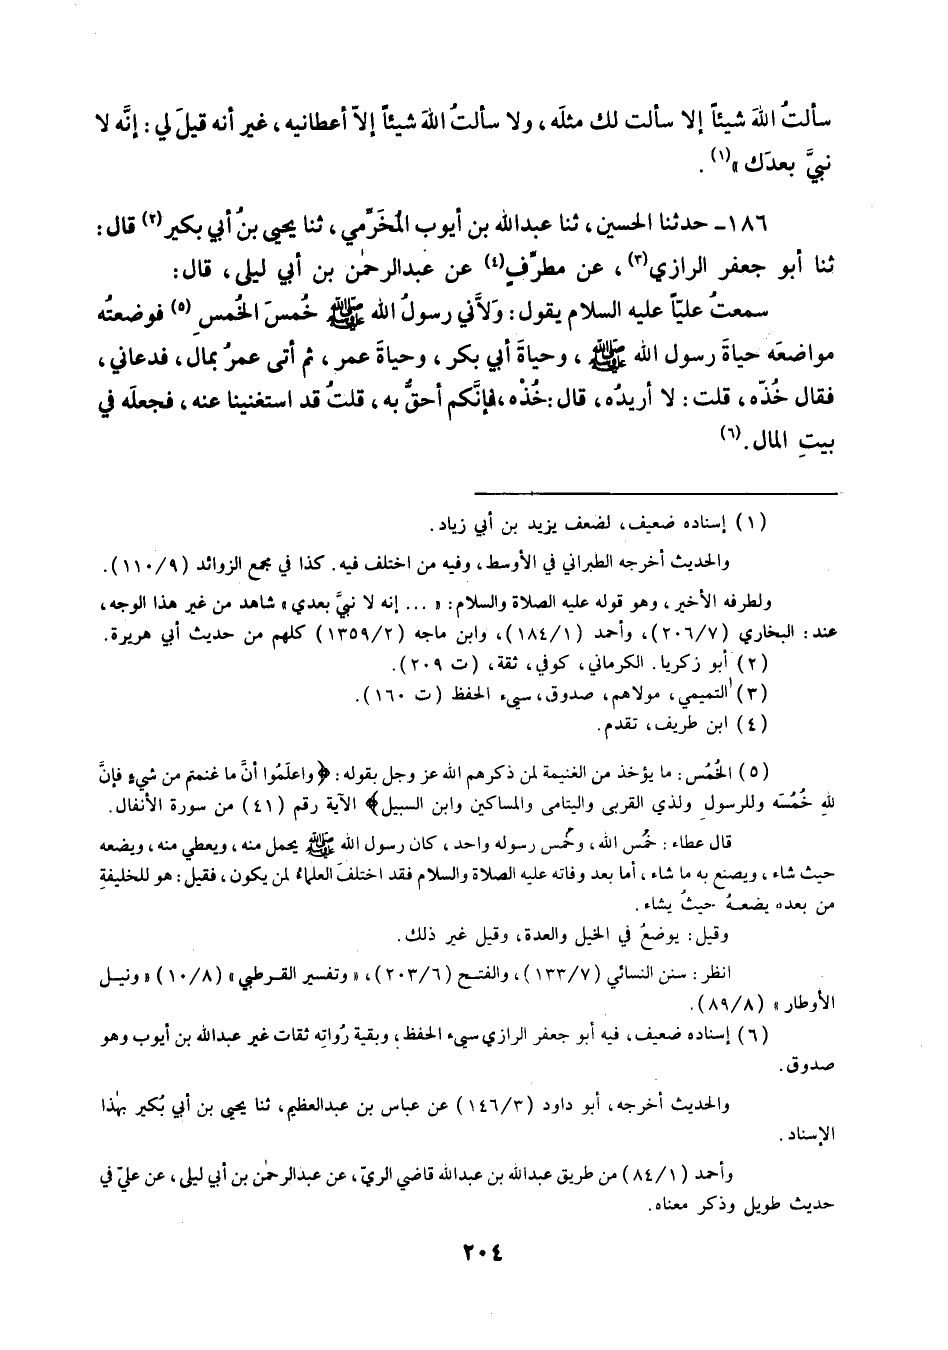 سألتُ اللهَ شيئاً إلا سألت لك مثلَه، ولا سألتُ اللهَ شيئاً إلاّ أعطانيه، غير أنه قيلَ لي: إنَّه لا
نبيَّ بعدَك»(١).
١٨٦ـ حدثنا الحسين، ثنا عبدالله بن أيوب المُخَرِّمي، ثنا يحيى بنُ أبي بكير(٢) قال:
ثنا أبو جعفر الرازي(٣)، عن مطرِّفٍ(٤) عن عبدالرحمٰن بن أبي ليلى، قال:
سمعتُ عليّاً عليه السلام يقول: وَلاَّني رسولُ الله ﷺ خُمسَ الخُمسِ(٥) فوضعتُه
مواضعَه حياةَ رسول الله ﷺ، وحياةَ أبي بكر، وحياةَ عمر، ثم أتى عمرُ بمال، فدعاني،
فقال خُذْه، قلت: لا أريدُه، قال: خُذْه، فإنَّكم أحقُّ به، قلتُ قد استغنينا عنه، فجعلَه في
بيتِ المال.(٦)
(١) إسناده ضعيف، لضعف يزيد بن أبي زياد.
والحديث أخرجه الطبراني في الأوسط، وفيه من اختلف فيه. كذا في مجمع الزوائد (١١٠/٩).
ولطرفه الأخير، وهو قوله عليه الصلاة والسلام: «... إنه لا نبيَّ بعدي» شاهد من غير هذا الوجه،
عند: البخاري (٢٠٦/٧)، وأحمد (١٨٤/١)، وابن ماجه (١٣٥٩/٢) كلهم من حديث أبي هريرة.
(٢) أبو زكريا. الكرماني، كوفي، ثقة، (ت ٢٠٩).
(٣) التميمي، مولاهم، صدوق، سيىء الحفظ (ت ١٦٠).
(٤) ابن طريف، تقدم.
(٥) الخُمُس: ما يؤخذ من الغنيمة لمن ذكرهم الله عز وجل بقوله: ﴿واعلَمُوا أنَّ ما غنمتم من شيءٍ فإنَّ
للهِ خُمُسَه وللرسولِ ولذي القربى واليتامى والمساكين وابن السبيل﴾ الآية رقم (٤١) من سورة الأنفال.
قال عطاء: خمُس الله، وخُمس رسوله واحد، كان رسول الله ﷺ يحمل منه، ويعطي منه، ويضعه
حيث شاء، ويصنع به ما شاء، أما بعد وفاته عليه الصلاة والسلام فقد اختلفَ العلماءُ لمن يكون، فقيل: هو للخليفةِ
من بعده يضعهُ حيثُ يشاء.
وقيل: يوضعُ في الخيل والعدة، وقيل غير ذلك.
انظر: سنن النسائي (١٣٣/٧)، والفتح (٢٠٣/٦)، «وتفسير القرطبي» (١٠/٨) «ونيل
الأوطار» (٨٩/٨).
(٦) إسناده ضعيف، فيه أبو جعفر الرازي سيىء الحفظ، وبقية رُواته ثقات غير عبدالله بن أيوب وهو
صدوق.
والحديث أخرجه، أبو داود (١٤٦/٣) عن عباس بن عبدالعظيم، ثنا يحيى بن أبي بُكير بهٰذا
الإسناد.
وأحمد (٨٤/١) من طريق عبدالله بن عبدالله قاضي الريّ، عن عبدالرحمٰن بن أبي ليلى، عن عليّ في
حديث طويل وذكر معناه.
٢٠٤